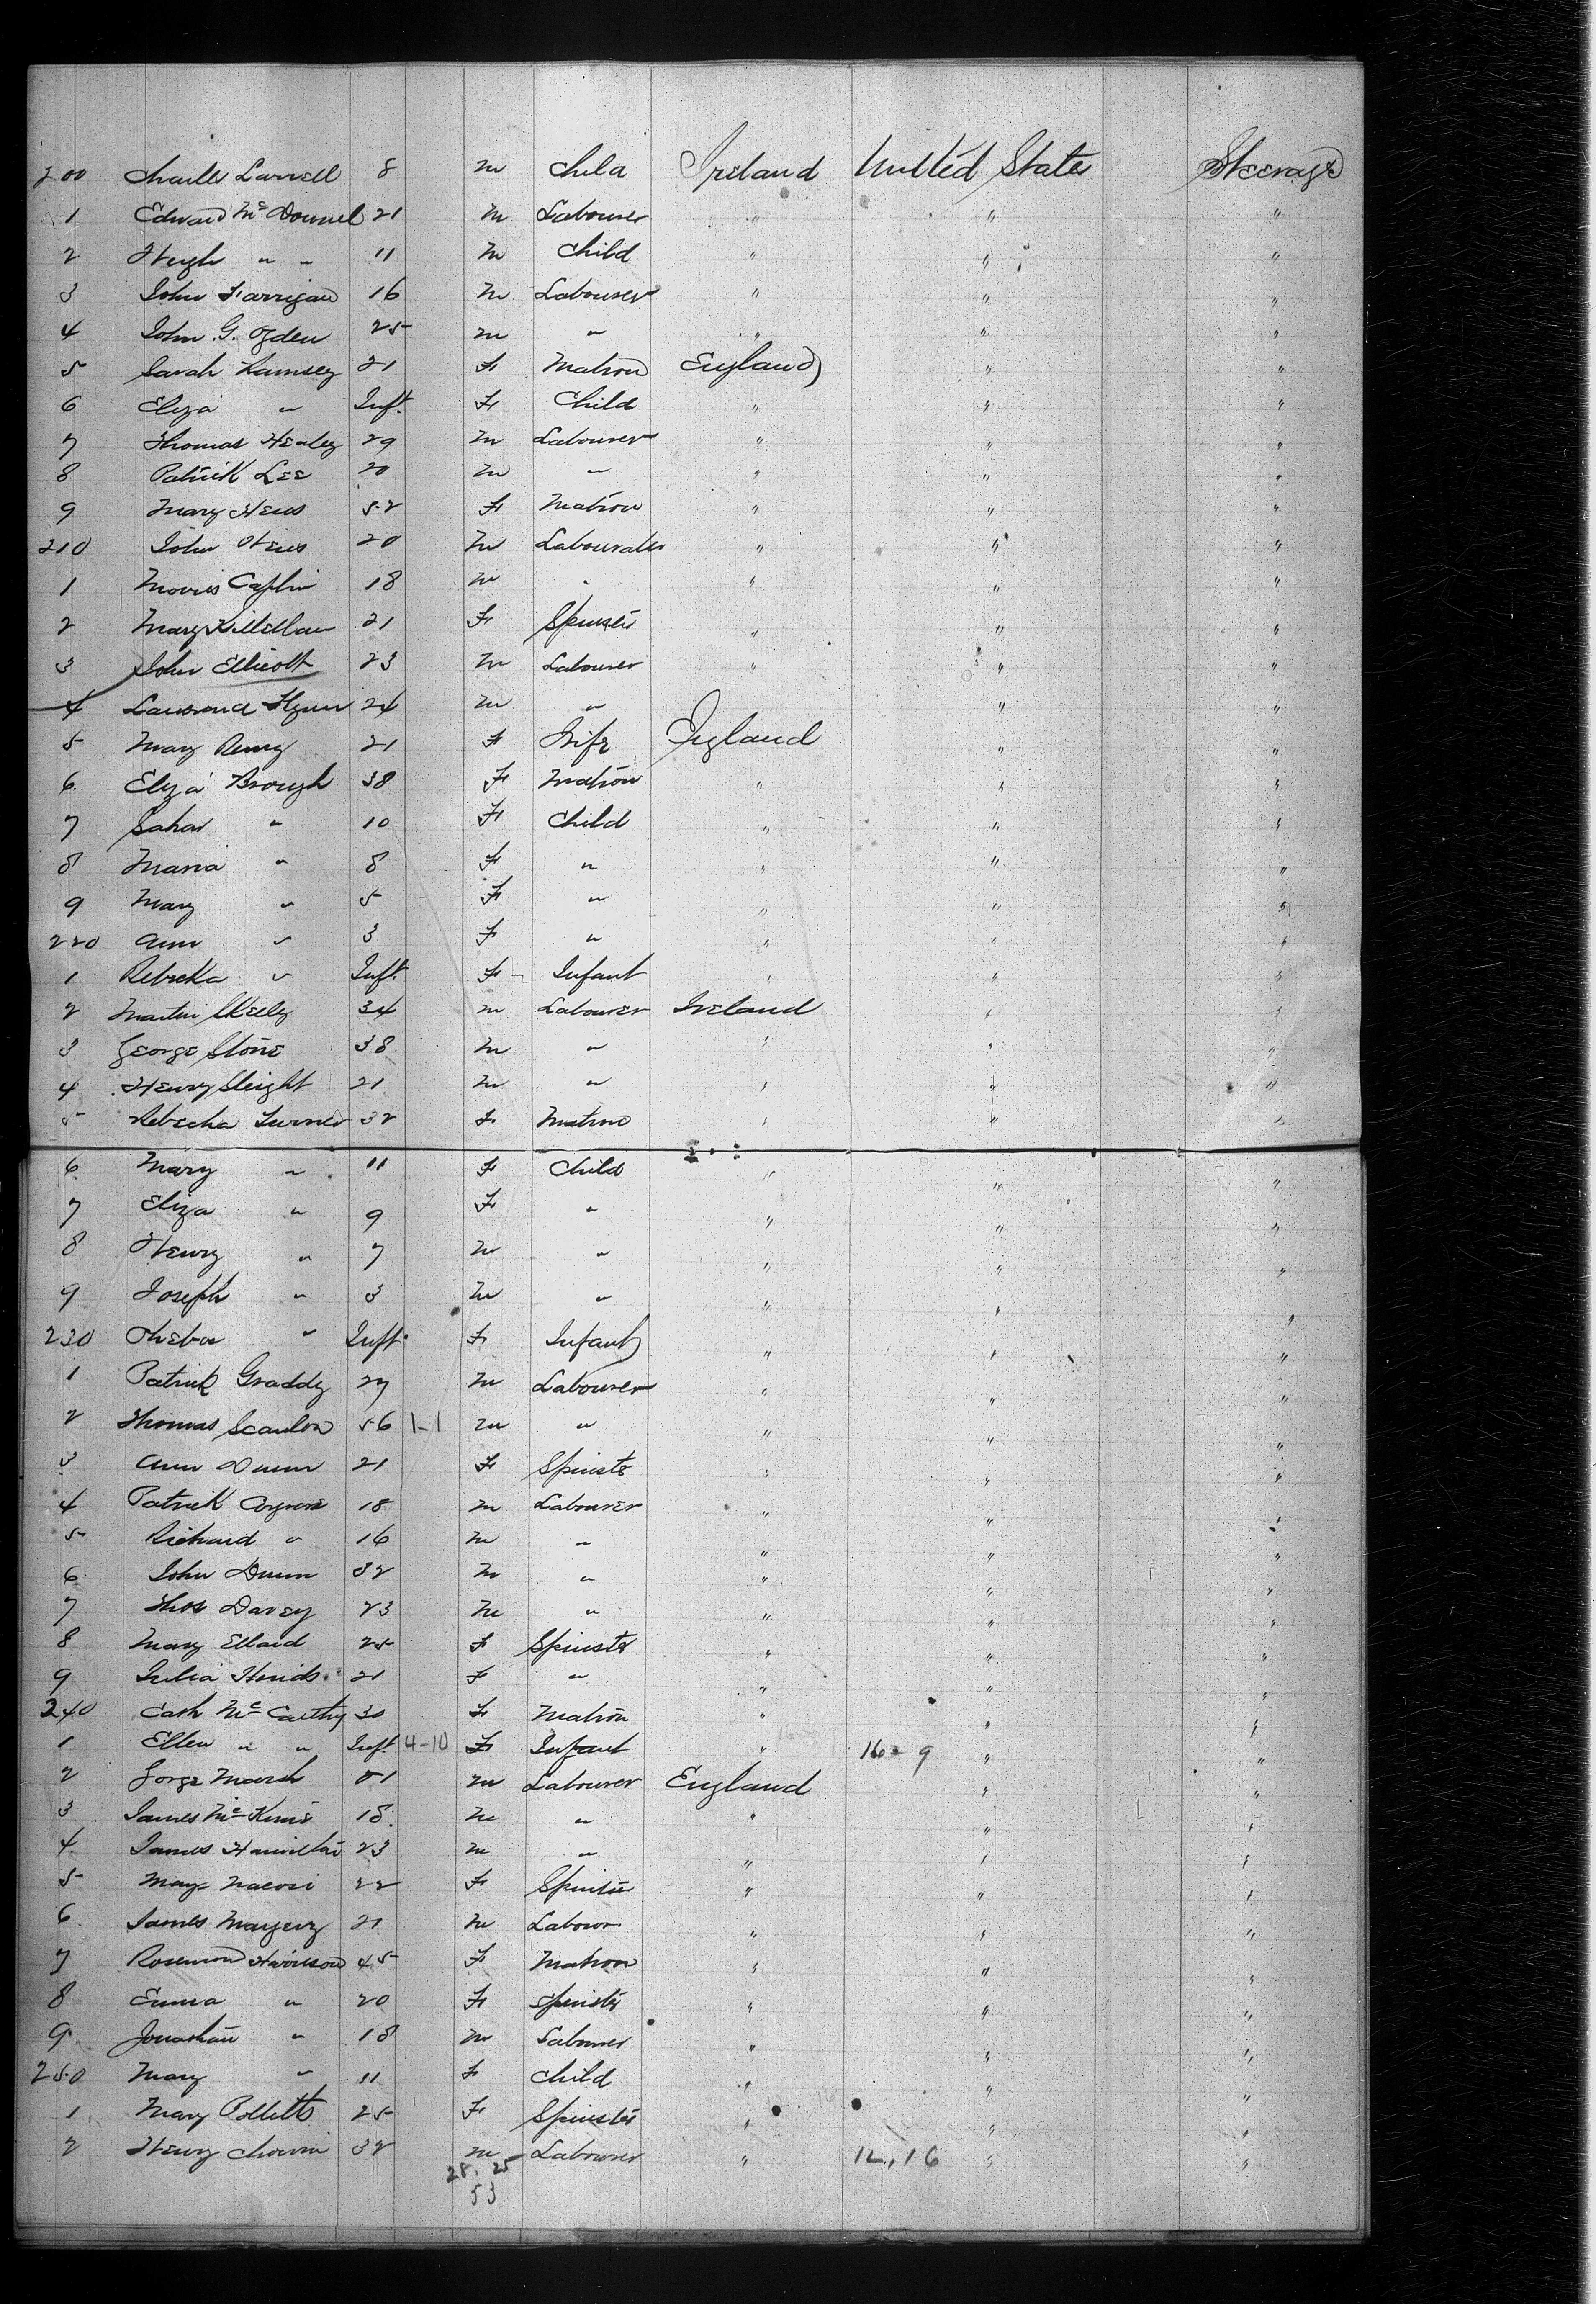 200 Charles Larrell 8 m Child Ireland United States Steerage
1 Edward McDonnel 21 m Labourer " " "
2 Hugh " " 11 m Child " " "
3 John Farrigan 16 m Labourer " " "
4 John G. Ogden 25 m " " " "
5 Sarah Ramsey 21 F Matron England " "
6 Eliza " Inft. F Child " " "
7 Thomas Healey 29 m Labourer " " "
8 Patrick Lee 20 m " " " "
9 Mary Hews 52 F Matron " " "
210 John Hews 20 m " " "
1 Morris Caplin 18 m " " " "
2 Mary Killellan 21 F Spinster " " "
3 John Ellicott 23 m Labourer " " "
4 Lawrence Flynn 24 m " " "
5 Mary Remy 21 F Wife England " "
6 Eliza Brough 38 F Matron " " "
7 Sahar " 10 F Child " " "
8 Maria " 8 F " " " "
9 Mary " 5 F " " " "
220 Ann " 3 F " " " "
1 Rebecka " Inft. F Infant " " "
2 Martin Skelly 34 m Labourer Ireland " "
3 George Stone 38 m " " " "
4 Henry Sleight 21 m " " " "
5 Rebecha Turner 32 F Matron " " "
6 Mary " 11 F Child " " "
7 Eliza " 9 F " " " "
8 Henry " 7 m " " " "
9 Joseph " 3 m " " " "
230 " Inft. F Infant " " "
1 Patrick Graddy 27 m Labourer " " "
2 Thomas Scanlon 56 1-1 m " " " "
3 Ann Dunn 21 F Spinster " " "
4 Patrick Coyne 18 m Labourer " " "
5 Richard " 16 m " " " "
6 John Dunn 32 m " " " "
7 Thos Davey 23 m " " " "
8 Mary Ellaid 25 F Spinster " " "
9 Julia Hinds 21 F " " " "
240 Cath McCarthy 30 F Matron " " "
1 Ellen " " Inft. 4-10 F Infant " 16-9 " "
2 Gorge Marsh 51 m Labourer England " "
3 James McKune 18. m " " " "
4 James Hamilton 23 m " " " "
5 May 22 F Spinster " " "
6 James Margery 21 m Labour " " "
7 Rosemond Harrison 45 F Matron " " "
8 Emma " 20 F Spinster " " "
9 Jonathan " 18 m Labourer " " "
250 Mary " 11 F Child " " "
1 Mary Pollitts 25 F Spinster " " "
2 Henry 32 m Labourer " 12,16 " "
28. 25
53